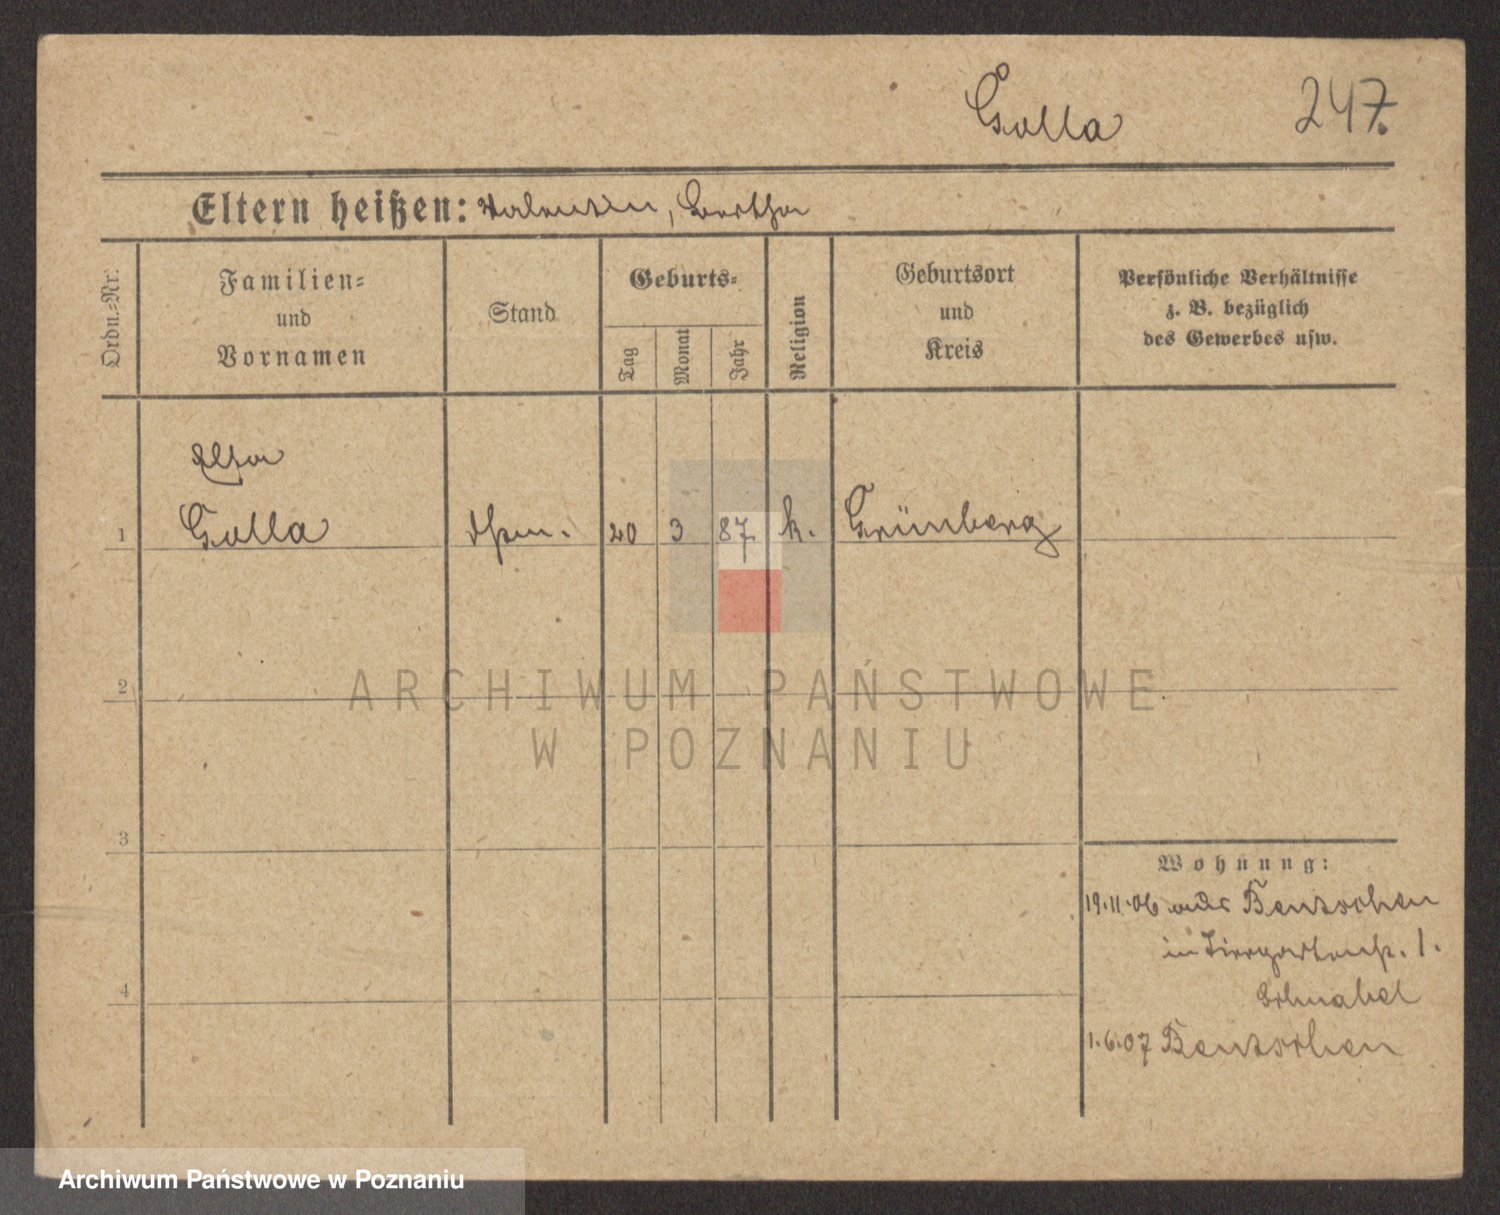 Golla
247.
Eltern heißen: Valentin, Bertha
Ordn.-Nr.
Familien-
und
Vornamen
Stand
Geburts-
Tag
Monat
Jahr
Religion
Geburtsort
und
Kreis
Persönliche Verhältnisse
z. B. bezüglich
des Gewerbes usw.
1
Golla
20
3
87.
k.
Grünberg
2
3
4
Wohnung:
19.11.06 aus Bentschen
in Tiergartenstr. 1.
Schnabel
1.6.07 Bentschen
ARCHIWUM PAŃSTWOWE
W POZNANIU
Archiwum Państwowe w Poznaniu